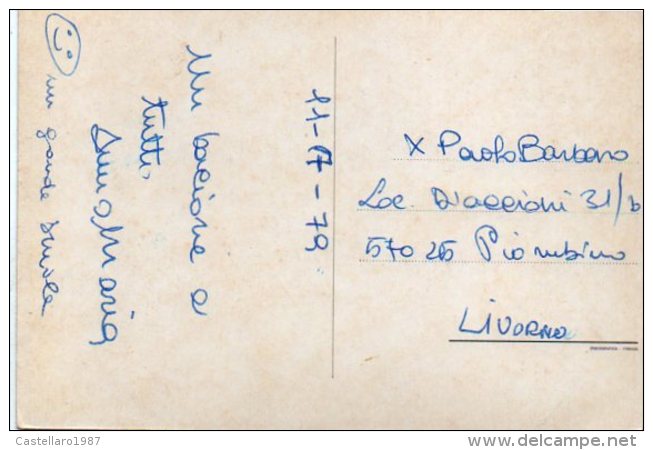 11-7-79
Un bacione a
tutti
Anna Maria
un grande
X Paolo Barbano
Loc. Diaccioni 31/b
57025 Piombino
LIVORNO
Castellaro1987
www.delcampe.net